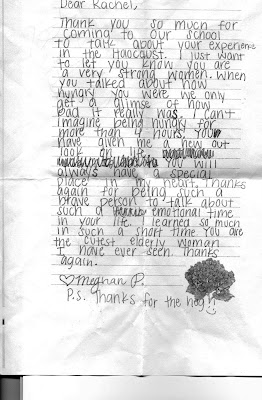 Dear Rachel,
Thank you so much for
coming to our school
to talk about your experience
in the Haocaust. I just want
to let you know you are
a very strong women. When
you talked about how
hungry you were we only
get a glimse of how
bad it really was. I can't
imagine being hungry for
more than 4 hours. Your
have given me a new out
look on life
You will
always have a special
place in my heart. Thanks
again for being such a
brave person to talk about
such a emotional time
in your life. I learned so much
in such a short time. You are
the cutest elderly woman
I have ever seen. Thanks
again.
♡Meghan P.
P.S. Thanks for the hug!!